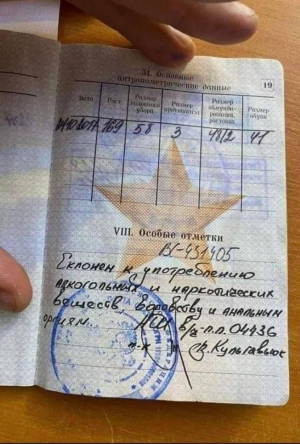 31. Основные
антропометрические данные
19
Дата
Рост
Размер головного убора
Размер противогаза
Размер обмундирования, ростовка
Размер обуви
169 58 3 48/2 41
VIII. Особые отметки
ВГ-431405
Склонен к употреблению
алкогольных и наркотических
веществ, воровству и анальным
оргиям.
в/ч-п.п. 04436
п-к